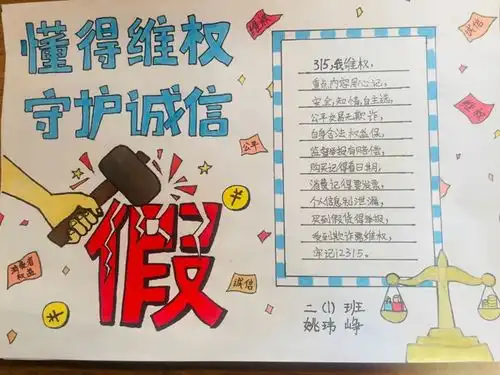 懂得维权
守护诚信
维权
诚信
维权
公平
假
消费者
权益
诚信
315,我维权,
重点内容用心记,
安全,知情,自主选,
公平交易无欺诈,
自身合法权益保,
监督举报有赔偿,
购买记得看日期,
消费记得要发票,
个人信息别泄漏,
买到假货得举报,
受到欺诈要维权,
牢记12315。
二(1)班
姚玮峥